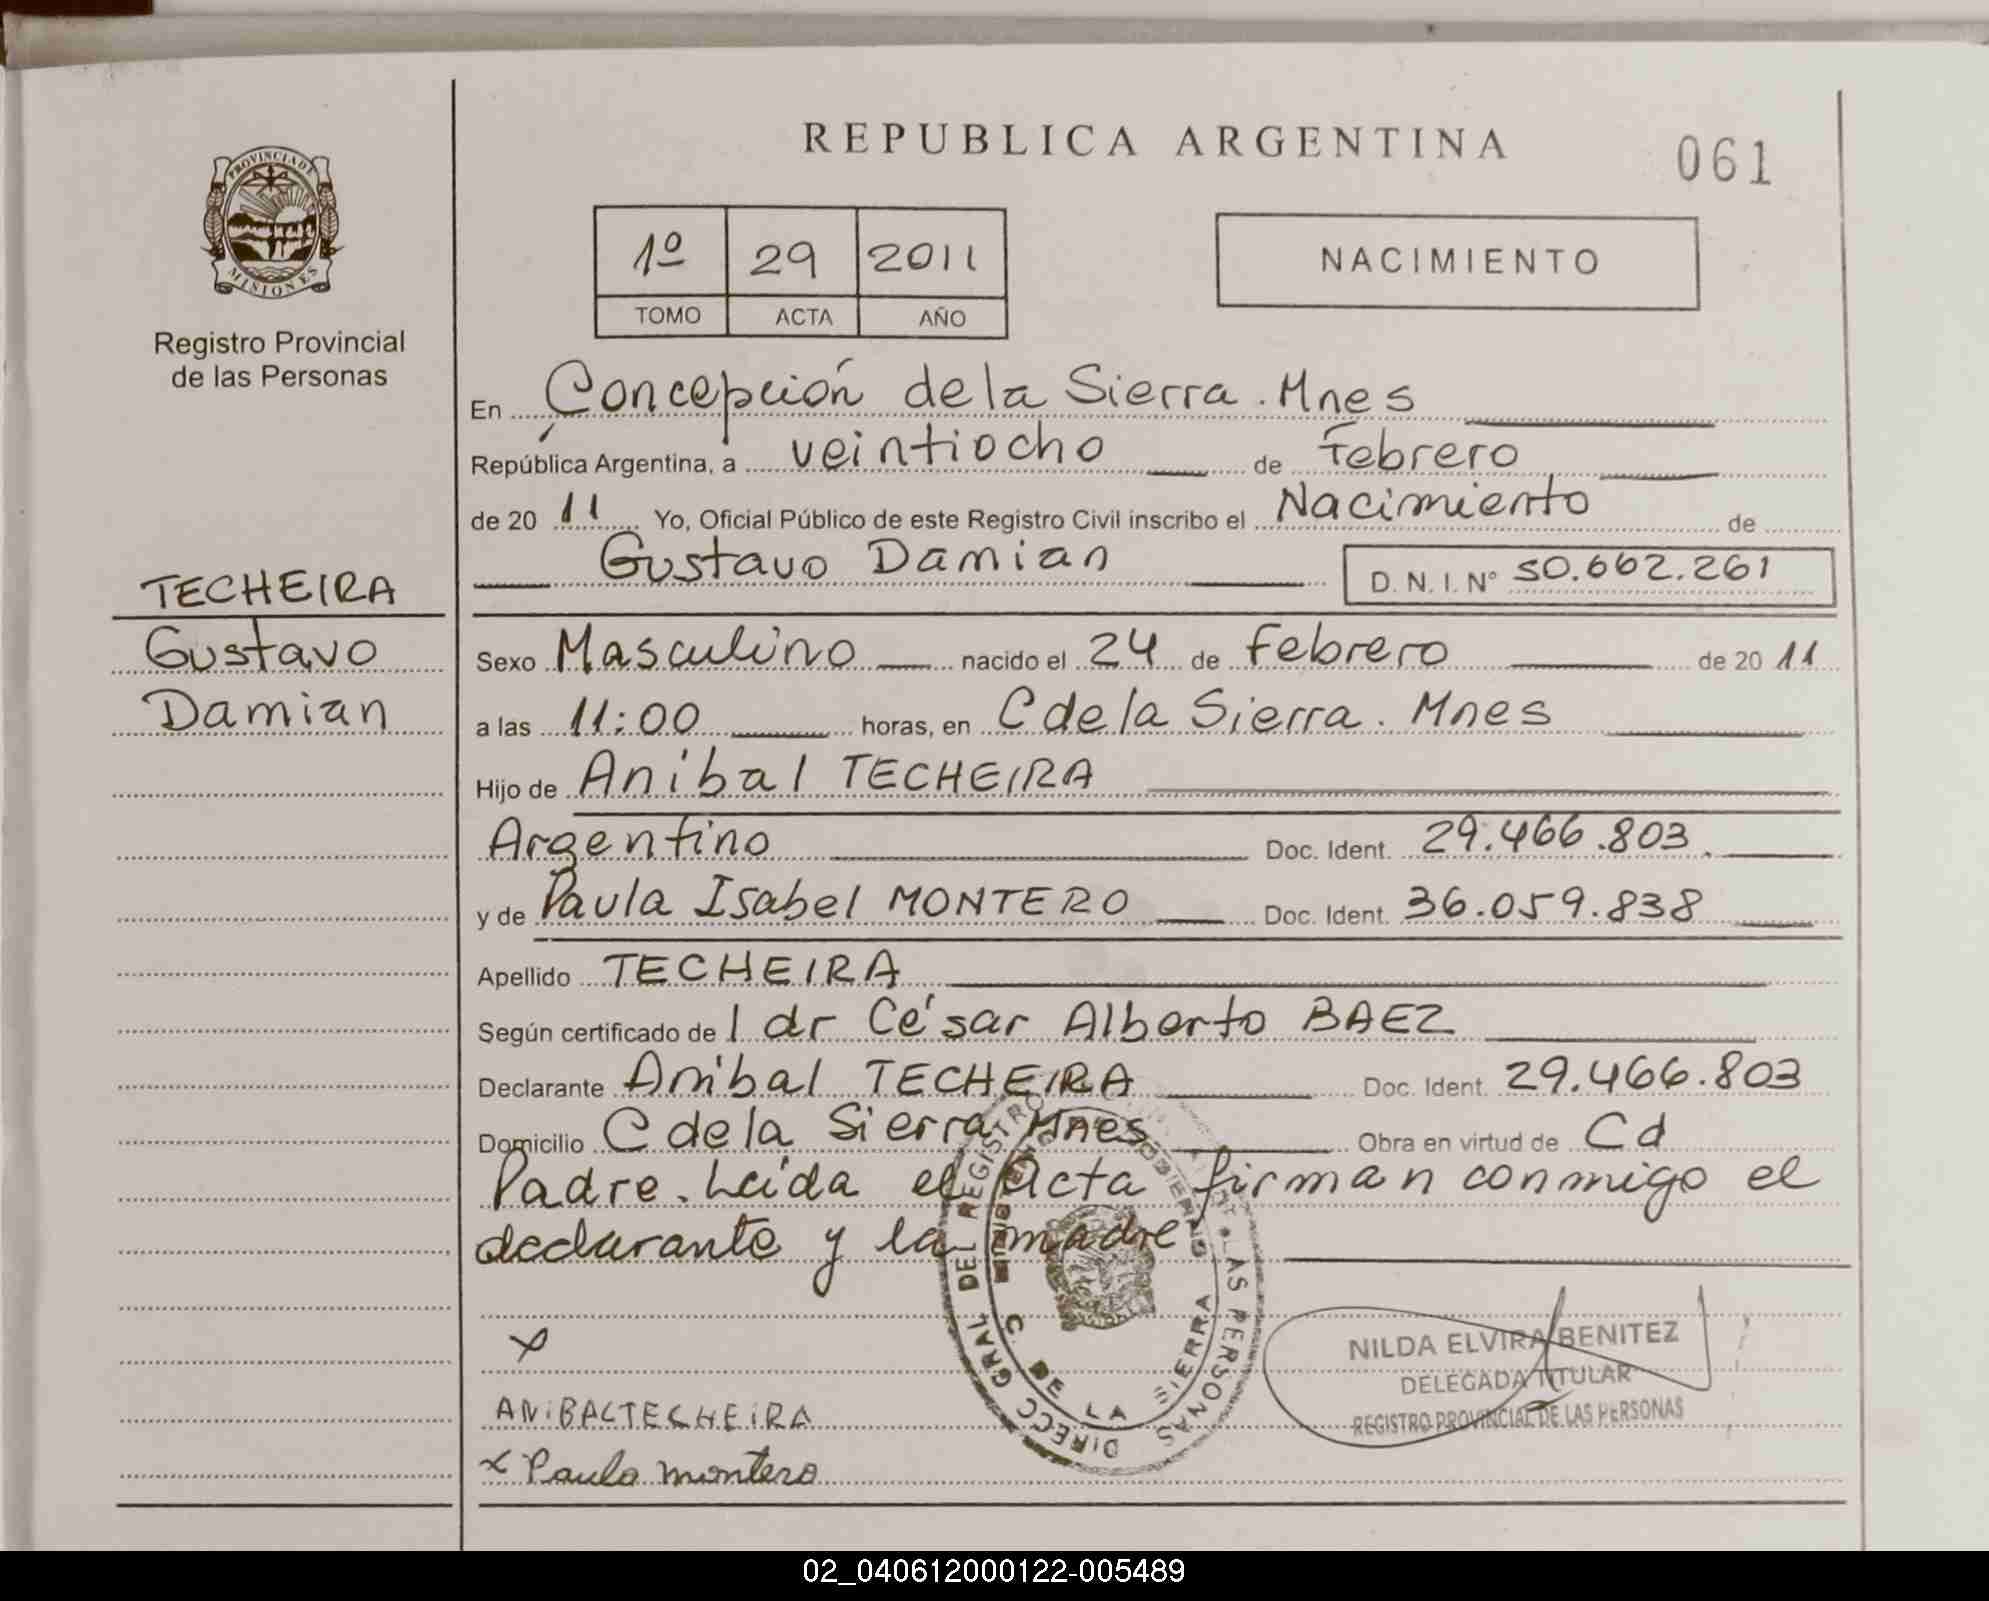 REPUBLICA ARGENTINA
061
PROVINCIA DE
MISIONES
Registro Provincial
de las Personas
1º 29 2011
TOMO ACTA AÑO
NACIMIENTO
En Concepción de la Sierra. Mnes
República Argentina, a veintiocho de Febrero
de 20 11 Yo, Oficial Público de este Registro Civil inscribo el Nacimiento de
Gustavo Damian D. N. I. Nº 50.662.261
TECHEIRA
Gustavo
Damian
Sexo Masculino nacido el 24 de Febrero de 20 11
a las 11:00 horas, en C de la Sierra. Mnes
Hijo de Anibal TECHEIRA
Argentino Doc. Ident. 29.466.803.
y de Paula Isabel MONTERO Doc. Ident. 36.059.838
Apellido TECHEIRA
Según certificado de l dr César Alberto BAEZ
Declarante Anibal TECHEIRA Doc. Ident. 29.466.803
Domicilio C de la Sierra Mnes Obra en virtud de Cd
Padre. Leida el Acta firman conmigo el
declarante y la madre
DIRECC GRAL DEL REGISTRO LAS PERSONAS
C DE LA SIERRA
x
ANiBALTECHEiRA
x Paula montero
NILDA ELVIRA BENITEZ
DELEGADA TITULAR
REGISTRO PROVINCIAL DE LAS PERSONAS
02_040612000122-005489